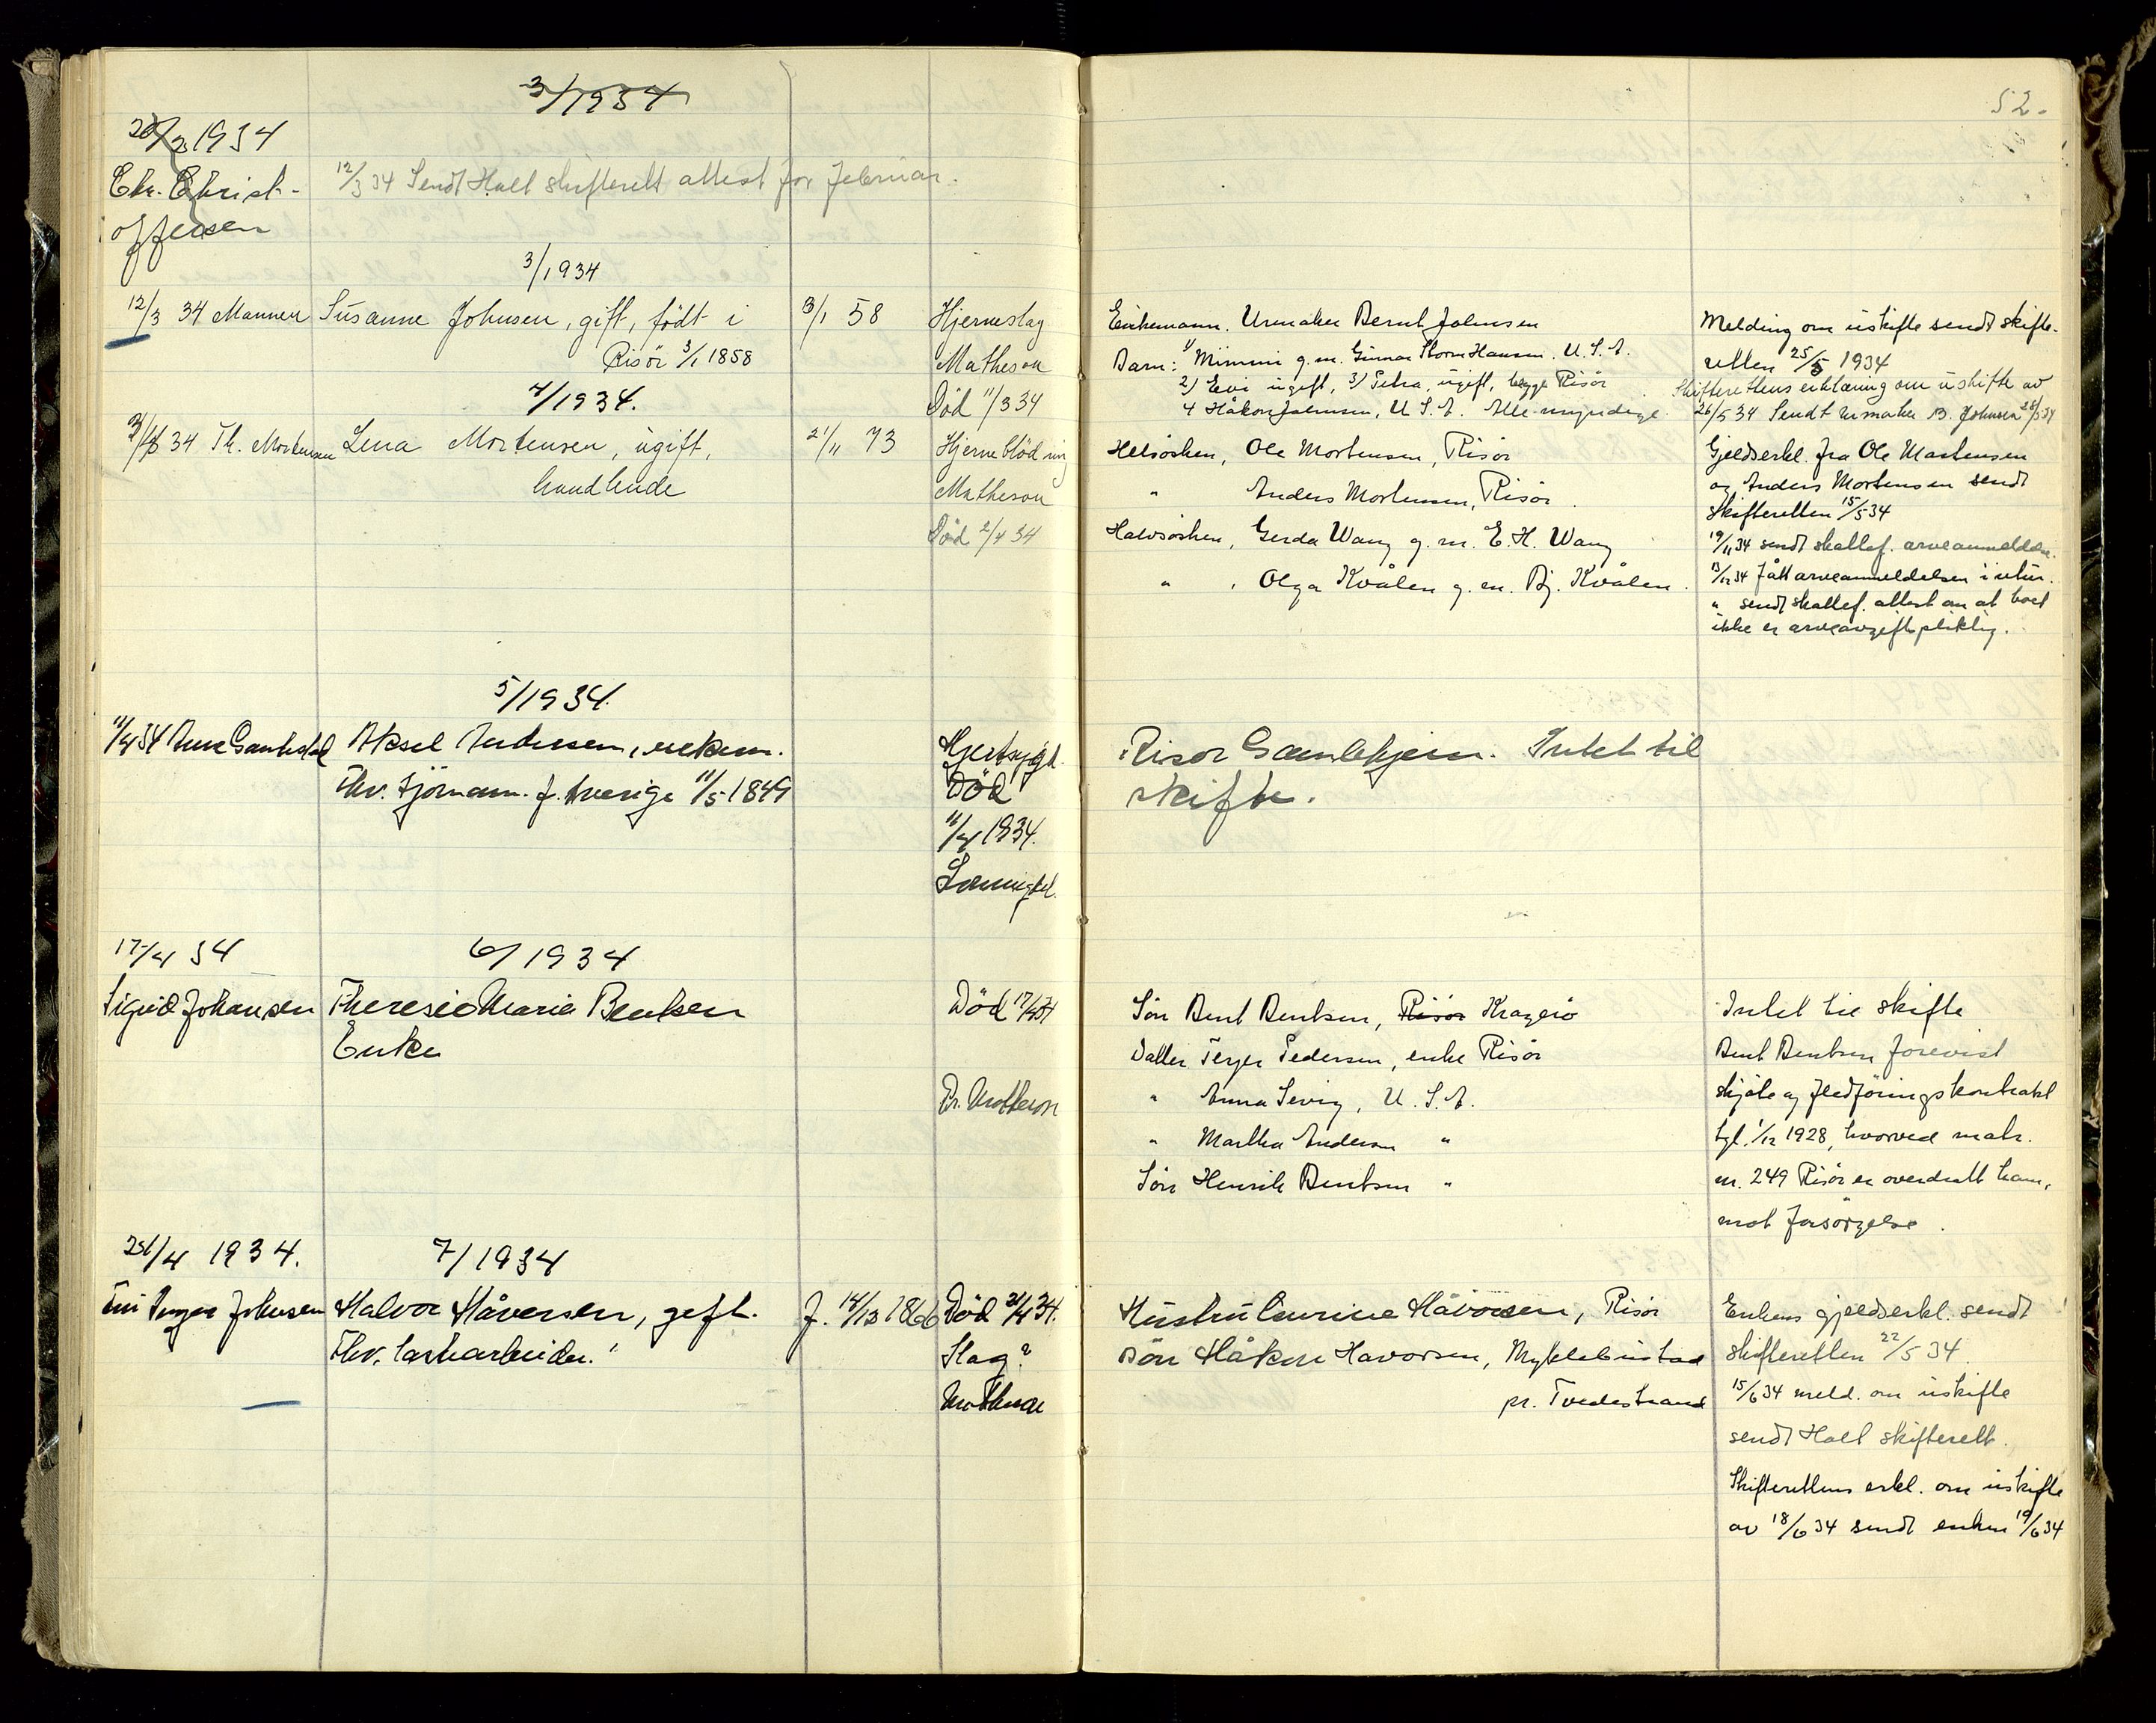 52.
3/1934
20/2 1934
Chr. Christ-
offersen
12/3 34 Sendt Holt skifterett attest for februar.
3/1934
12/3 34 Mannen
Susanne Johnsen, gift, født i
Risör 3/1 1858
3/1 58
Hjerneslag
Matheson
Död 11/3 34
Enkemann. Urmaker Bernt Johnsen
Barn: 1) Mimmi g.m. Gunnar Storm Hansen. U.S.A.
2) Evi ugift, 3) Petra, ugift, begge Risör
4 Håkon Johnsen, U.S.A. Alle myndige.
Melding om uskifte sendt skifte-
retten 25/5 1934
Skifterettens erklæring om uskifte av
26/5 34 Sendt urmaker B. Johnsen 28/5 34
4/1934.
34 Th. Mortensen
Lena Mortensen, ugift,
handlende
21/11 73
Hjerneblödning
Matheson
Död 2/4 34
Helsösken, Ole Mortensen, Risör
" Anders Mortensen, Risör.
Halvsösken, Gerda Wang g.m. E.H. Wang
" , Olga Kvålen g.m. Bj. Kvålen.
Gjeldserkl. fra Ole Mortensen
og Anders Mortensen sendt
skifteretten 15/5 34
19/11 34 sendt skattef. arveanmeldelse.
13/12 34 fått arveanmeldelsen i retur.
" sendt skattef. attest om at boet
ikke er arveavgiftspliktig.
5/1934.
11/4 34
Aksel Andersen, enkem.
Fhv. Sjömann. f. Sverige 11/5 1849
Hjertesygd.
Död
11/4 1934.
Risør Gamlehjem. Intet til
skifte.
17/4 34
6/1934
Sigrid Johansen
Theresie Maria Bentsen
Enke
Död 17/4 34
Dr. Matheson
Sön Bent Bentsen, Risör Kragerö
Datter Terjer Pedersen, enke Risör
" Anna Sevig, U.S.A.
" Martha Anderson "
Sön Henrik Bentsen "
Intet til skifte
Bent Bentsen forevist
skjöte og fledföringskontrakt
tgl. 1/12 1928, hvorved matr.
nr. 249 Risör er overdratt ham,
mot forsörgelse.
21/4 1934.
7/1934
Fru Inger Johnsen
Halvor Håversen, gift.
Fhv. lastearbeider.
f. 14/12 1866
Död 21/4 34.
Slag?
Matheson
Hustru Laurine Håvorsen, Risör
Sön Håkon Havorsen, Myklebustad
pr. Tvedestrand
Enkens gjeldserkl. sendt
skifteretten 22/5 34.
15/6 34 meld. om uskifte
sendt Holt skifterett.
Skifterettens erkl. om uskifte
av 18/6 34 sendt enken 19/6 34